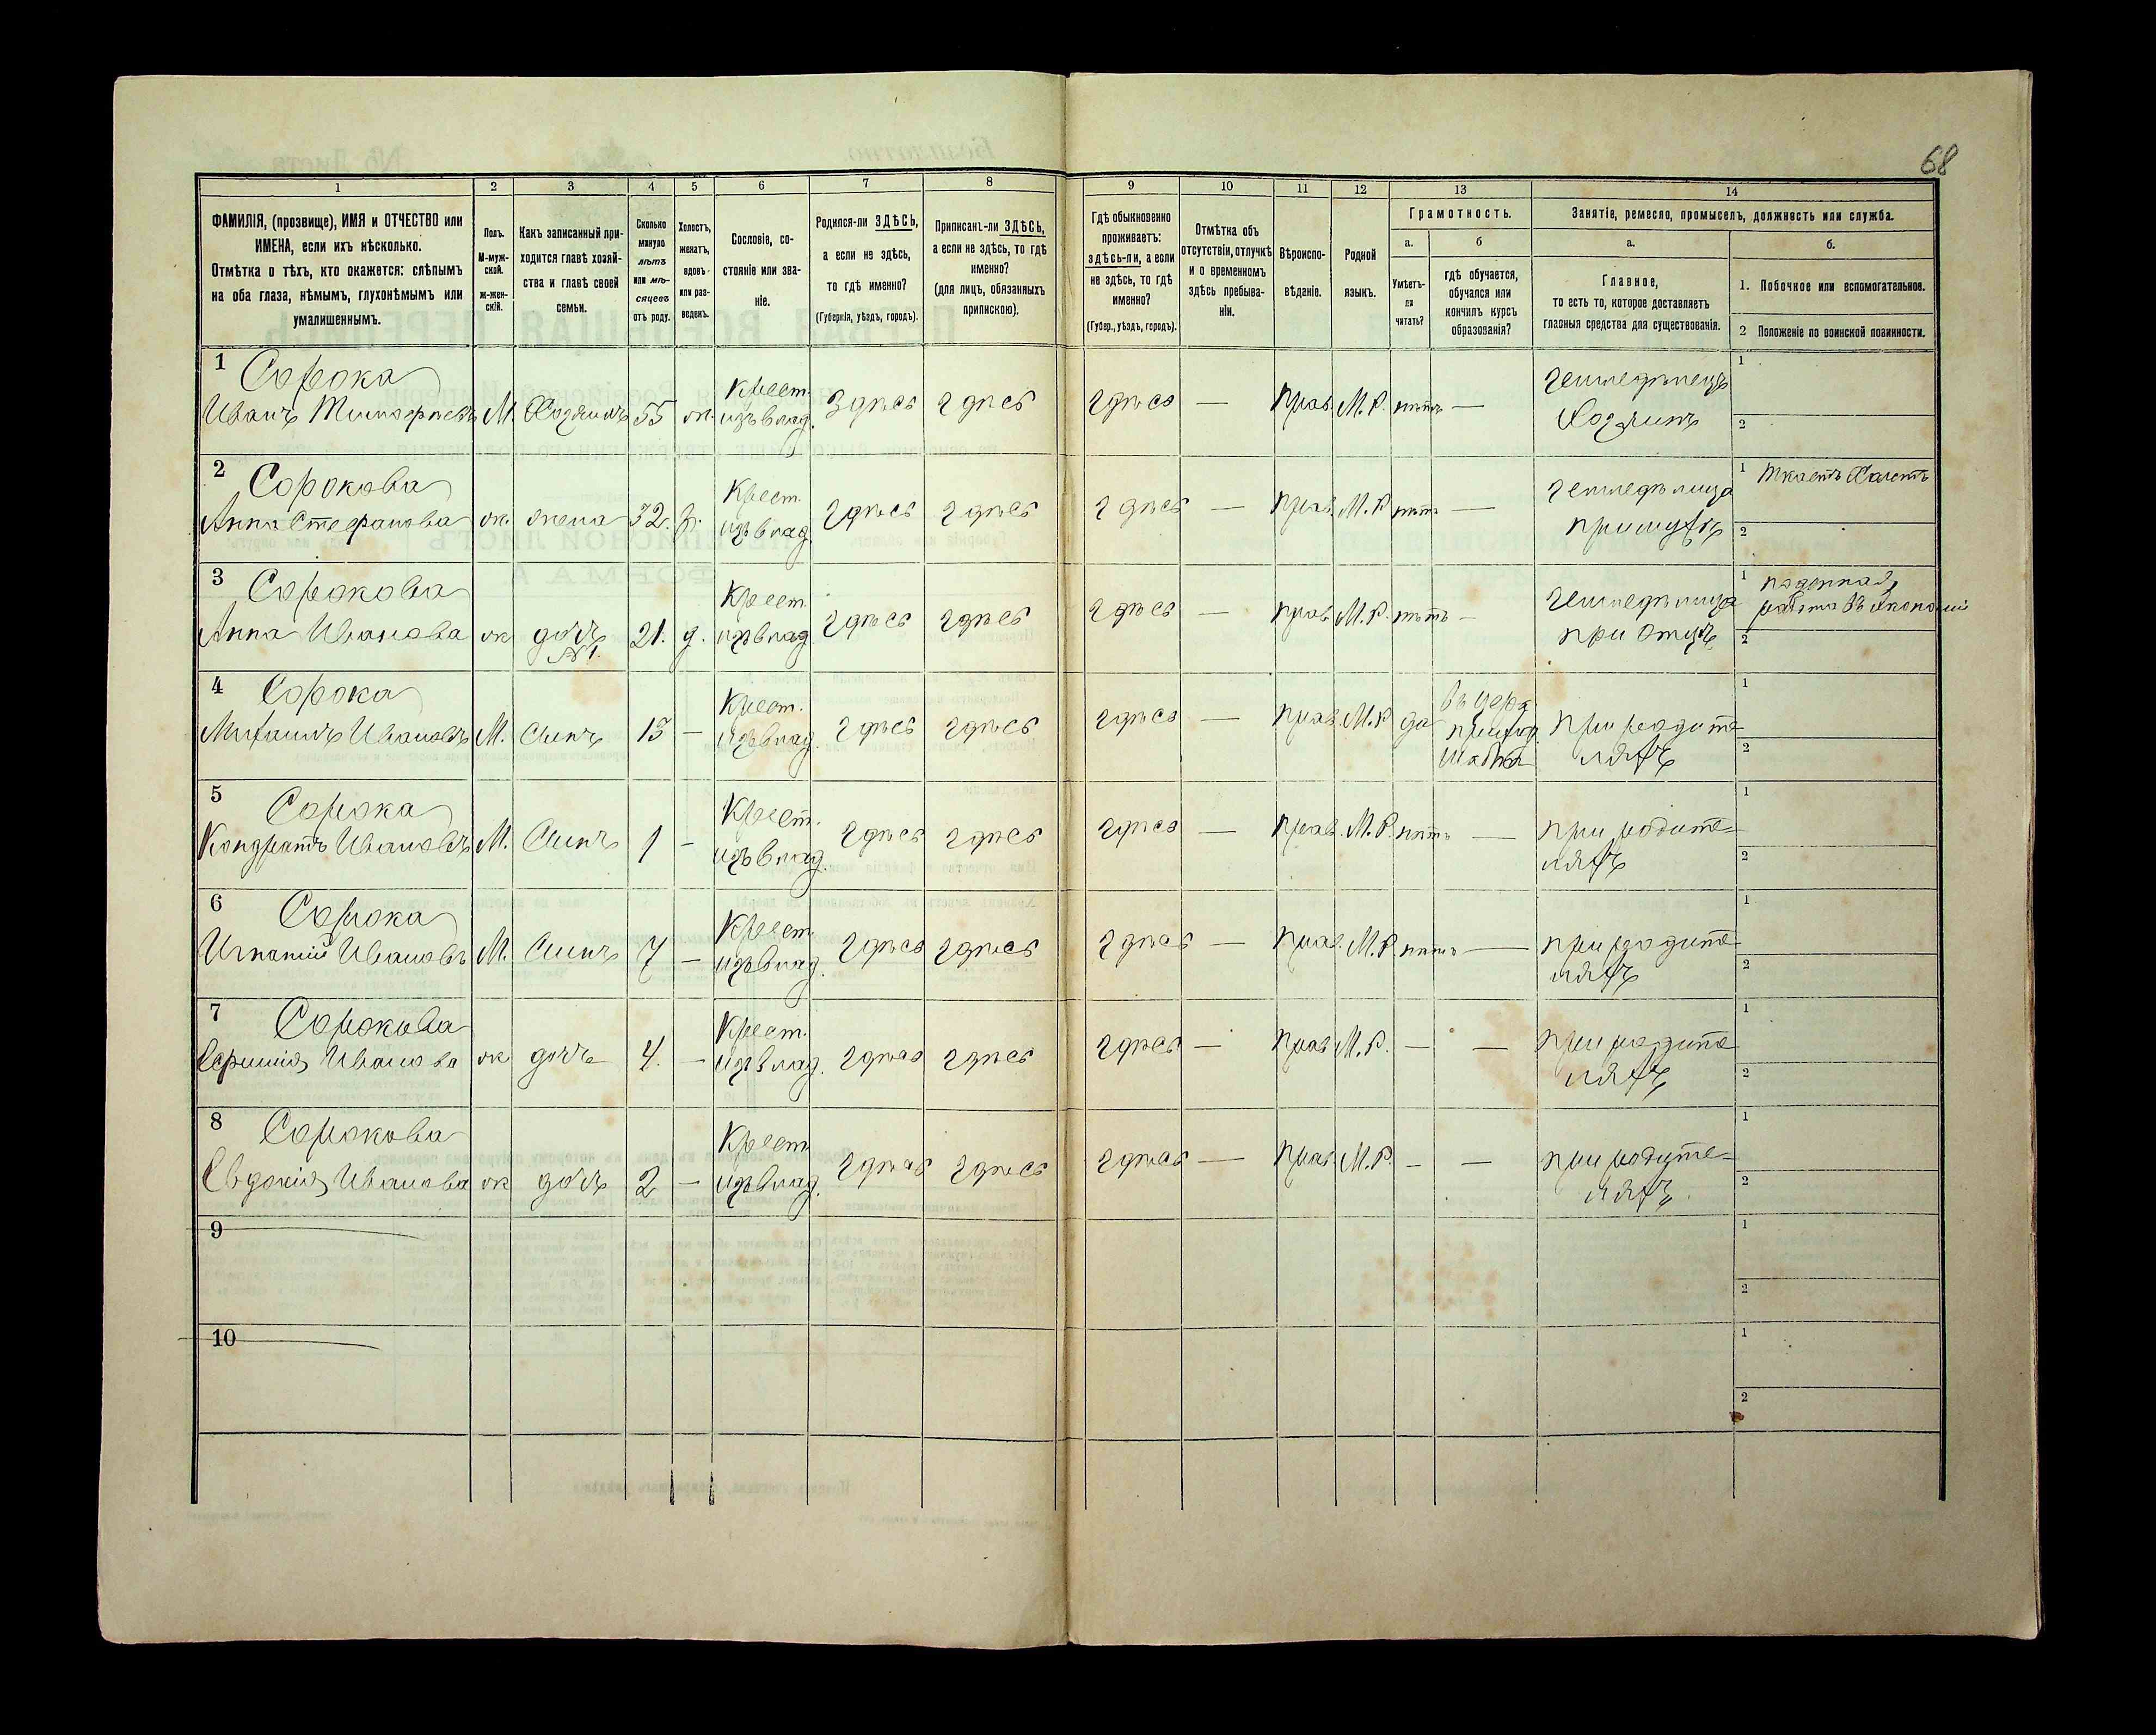 68
1 2 3 4 5 6 7 8 9 10 11 12 13 14
ФАМИЛІЯ, (прозвище), ИМЯ и ОТЧЕСТВО или
ИМЕНА, если ихъ нѣсколько.
Отмѣтка о тѣхъ, кто окажется: слѣпымъ
на оба глаза, нѣмымъ, глухонѣмымъ или
умалишеннымъ.
Полъ.
М-муж-
ской.
ж-жен-
скій.
Какъ записанный при-
ходится главѣ хозяй-
ства и главѣ своей
семьи.
Сколько
минуло
лѣтъ
или мѣ-
сяцевъ
отъ роду.
Холостъ,
женатъ,
вдовъ
или раз-
веденъ.
Сословіе, со-
стояніе или зва-
ніе.
Родился-ли ЗДѢСЬ,
а если не здѣсь,
то гдѣ именно?
(Губернія, уѣздъ, городъ).
Приписанъ-ли ЗДѢСЬ,
а если не здѣсь, то гдѣ
именно?
(для лицъ, обязанныхъ
припискою).
Гдѣ обыкновенно
проживаетъ:
здѣсь-ли, а если
не здѣсь, то гдѣ
именно?
(Губер., уѣздъ, городъ).
Отмѣтка объ
отсутствіи, отлучкѣ
и о временномъ
здѣсь пребыва-
ніи.
Вѣроиспо-
вѣданіе.
Родной
языкъ.
Грамотность.
а.
Умѣетъ-
ли
читать?
б
гдѣ обучается,
обучался или
кончилъ курсъ
образованія?
Занятіе, ремесло, промыселъ, должность или служба.
а.
Главное,
то есть то, которое доставляетъ
главныя средства для существованія.
б.
1. Побочное или вспомогательное.
2 Положеніе по воинской повинности.
1 Сорока
Крест. земледѣлецъ 1
Иванъ Тимофеевъ М. Хозяинъ 55 ж. изъ влад. Здѣсь здѣсь здѣсь — прав. М.Р. нѣтъ — Хозяинъ 2
2 Сорокова
Крест. земледѣлица 1 Ткаетъ Холстъ
Анна Стефанова ж. жена 32. изъ влад. здѣсь здѣсь здѣсь — прав. М.Р. нѣтъ — при мужѣ 2
3 Сорокова
Крест. земледѣлица 1 поденная
работа въ экономіи
Анна Иванова ж дочь 21. д. изъ влад. здѣсь здѣсь здѣсь — прав. М.Р. нѣтъ — при отцѣ 2
№1.
4 Сорока
Крест. въ церк. 1
Михаилъ Ивановъ М. Сынъ 13 — изъ влад. здѣсь здѣсь здѣсь — прав. М.Р да приход. при родите
школѣ ляхъ 2
5 Сорока
Крест. 1
Кондратъ Ивановъ М. Сынъ 1 — изъ влад. здѣсь здѣсь здѣсь — прав. М.Р. нѣтъ — при родите-
ляхъ 2
6 Сорока
Крест. 1
Игнатій Ивановъ М. Сынъ 7 — изъ влад. здѣсь здѣсь здѣсь — прав. М.Р. нѣтъ — при родите
ляхъ 2
7 Сорокова
Крест. 1
Ефимія Иванова ж дочь 4. — изъ влад. здѣсь здѣсь здѣсь — прав М.Р. — — при родите
ляхъ 2
8 Сорокова
Крест. 1
Евдокія Иванова ж дочь 2 — изъ влад. здѣсь здѣсь здѣсь — прав. М.Р. — — при родите-
ляхъ. 2
9 1
2
10 1
2